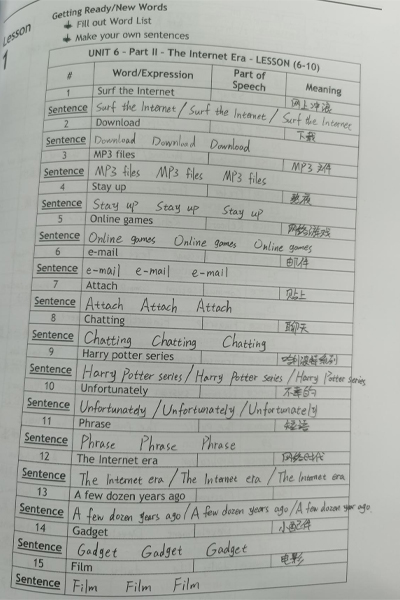 Lesson 1
Getting Ready/New Words
Fill out Word List
Make your own sentences
UNIT 6 - Part II - The Internet Era - LESSON (6-10)
# Word/Expression Part of Speech Meaning
1 Surf the Internet 网上冲浪
Sentence Surf the Internet / Surf the Internet / Surf the Internet
2 Download 下载
Sentence Download Download Download
3 MP3 files MP3文件
Sentence MP3 files MP3 files MP3 files
4 Stay up 熬夜
Sentence Stay up Stay up Stay up
5 Online games 网络游戏
Sentence Online games Online games Online games
6 e-mail 邮件
Sentence e-mail e-mail e-mail
7 Attach 贴上
Sentence Attach Attach Attach
8 Chatting 聊天
Sentence Chatting Chatting Chatting
9 Harry potter series 哈利波特系列
Sentence Harry Potter series / Harry Potter series / Harry Potter series
10 Unfortunately 不幸的
Sentence Unfortunately / Unfortunately / Unfortunately
11 Phrase 短语
Sentence Phrase Phrase Phrase
12 The Internet era 网络时代
Sentence The Internet era / The Internet era / The Internet era
13 A few dozen years ago
Sentence A few dozen years ago / A few dozen years ago / A few dozen year ago
14 Gadget 小配件
Sentence Gadget Gadget Gadget
15 Film 电影
Sentence Film Film Film